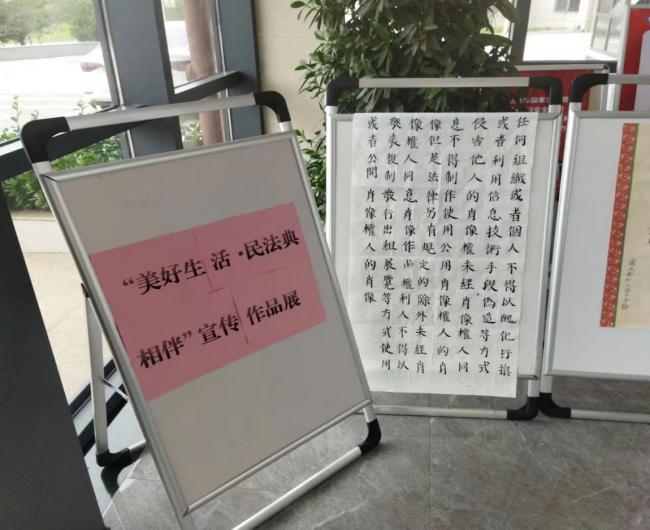 “美好生活·民法典
相伴”宣传作品展
任何組織或者個人不得以醜化污損
或者利用信息技術手段偽造等方式
侵害他人的肖像權未經肖像權人同
意不得制作使用公用肖像權人的肖
像但是法律另有規定的除外未經肖
像權人同意肖像作品權利人不得以
發表復制發行出租展覽等方式使用
或者公開肖像權人的肖像